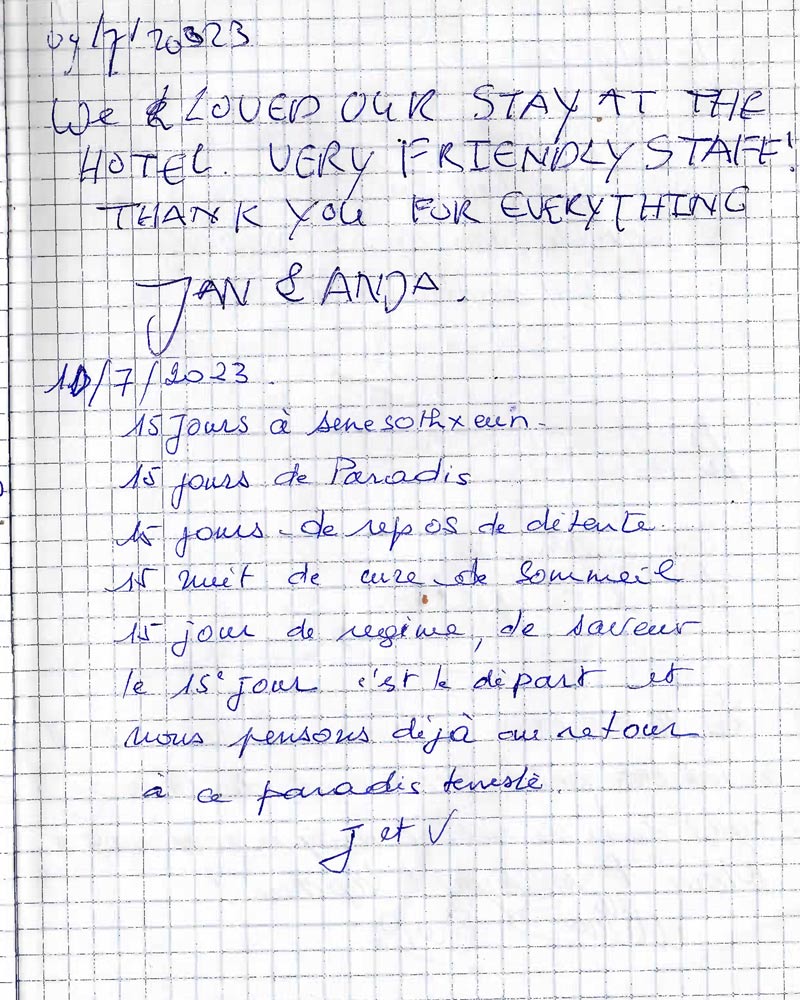 09/7/2023
We LOVED OUR STAY AT THE
HOTEL. VERY FRIENDLY STAFF!
THANK YOU FOR EVERYTHING
JAN & ANJA.
10/7/2023.
15 Jours à
15 jours de Paradis
15 jours de repos de détente.
15 nuit de cure de Sommeil
15 jour de regime, de saveur
le 15e jour c'est le départ et
nous pensons déjà au retour
à ce paradis
J et V